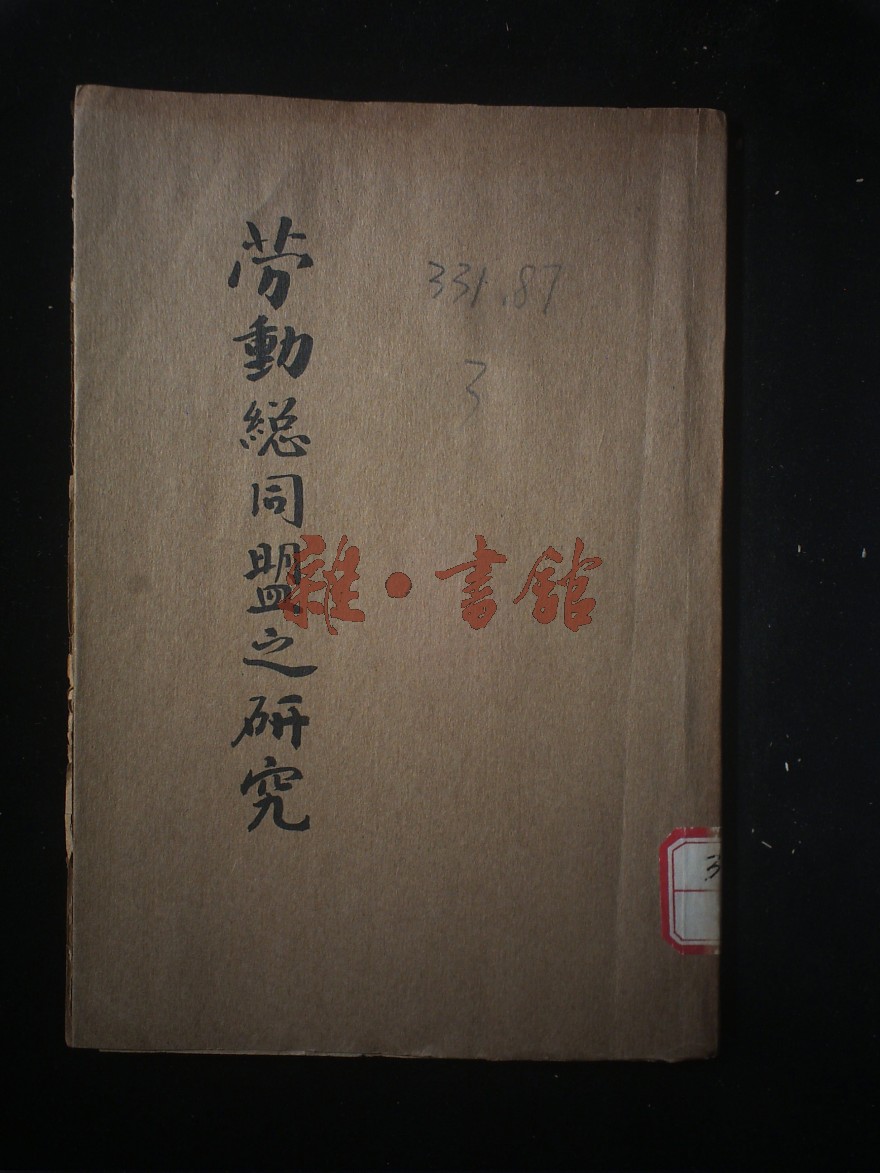 劳動総同盟之研究
331.87
3
雜·書館
3